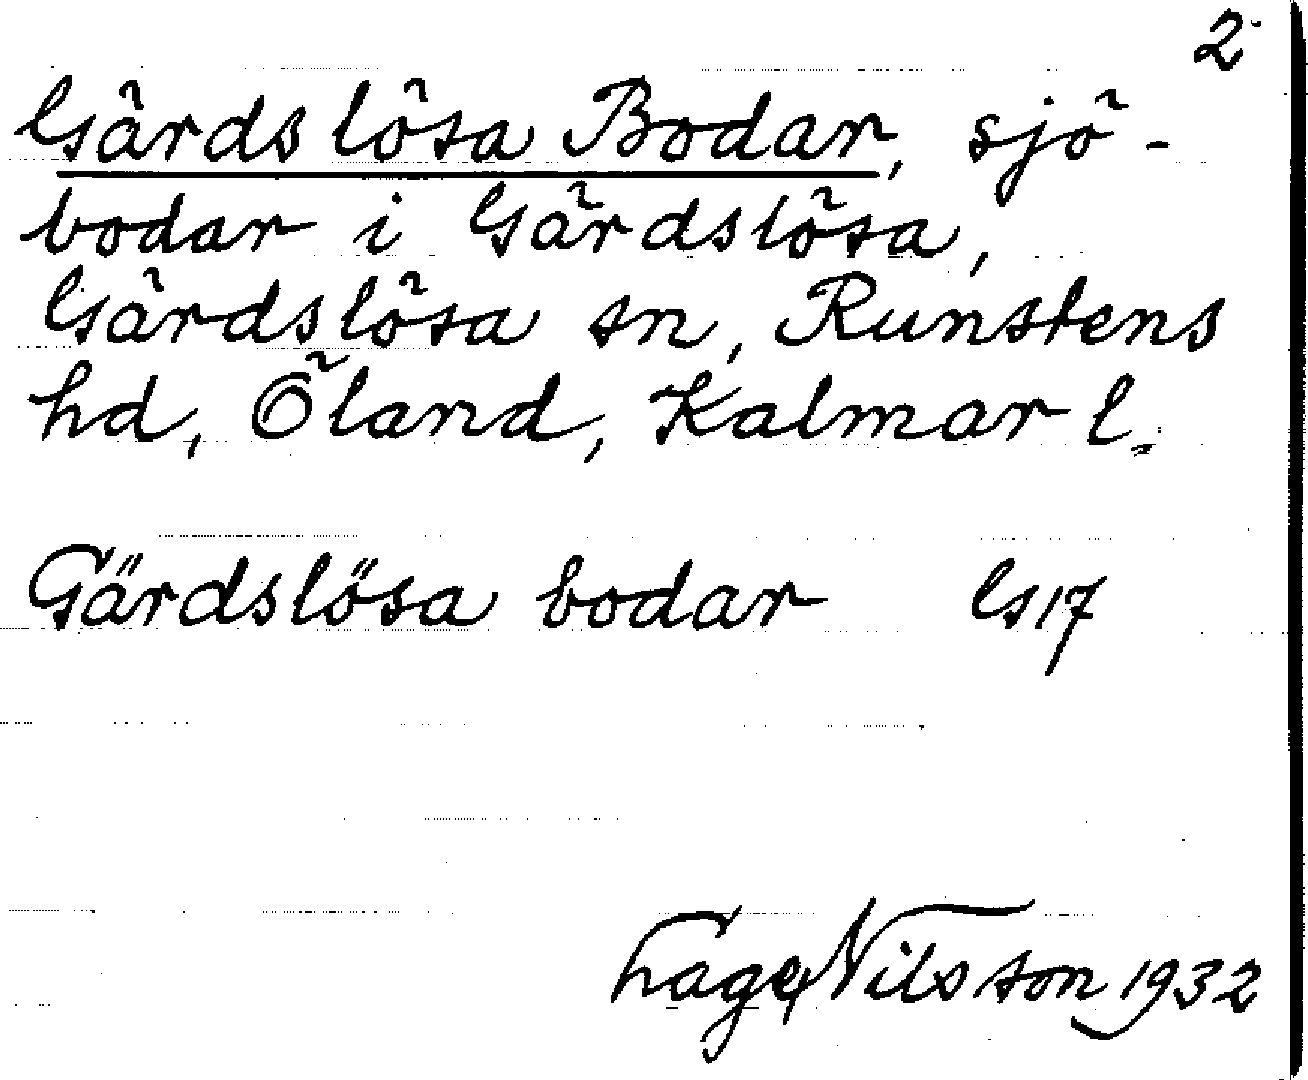 2
Gärdslösa Bodar, sjö-
bodar i Gärdslösa,
Gärdslösa sn, Runstens
hd, Öland, Kalmar l.
Gärdslösa bodar G17
Hage Nilsson 1932